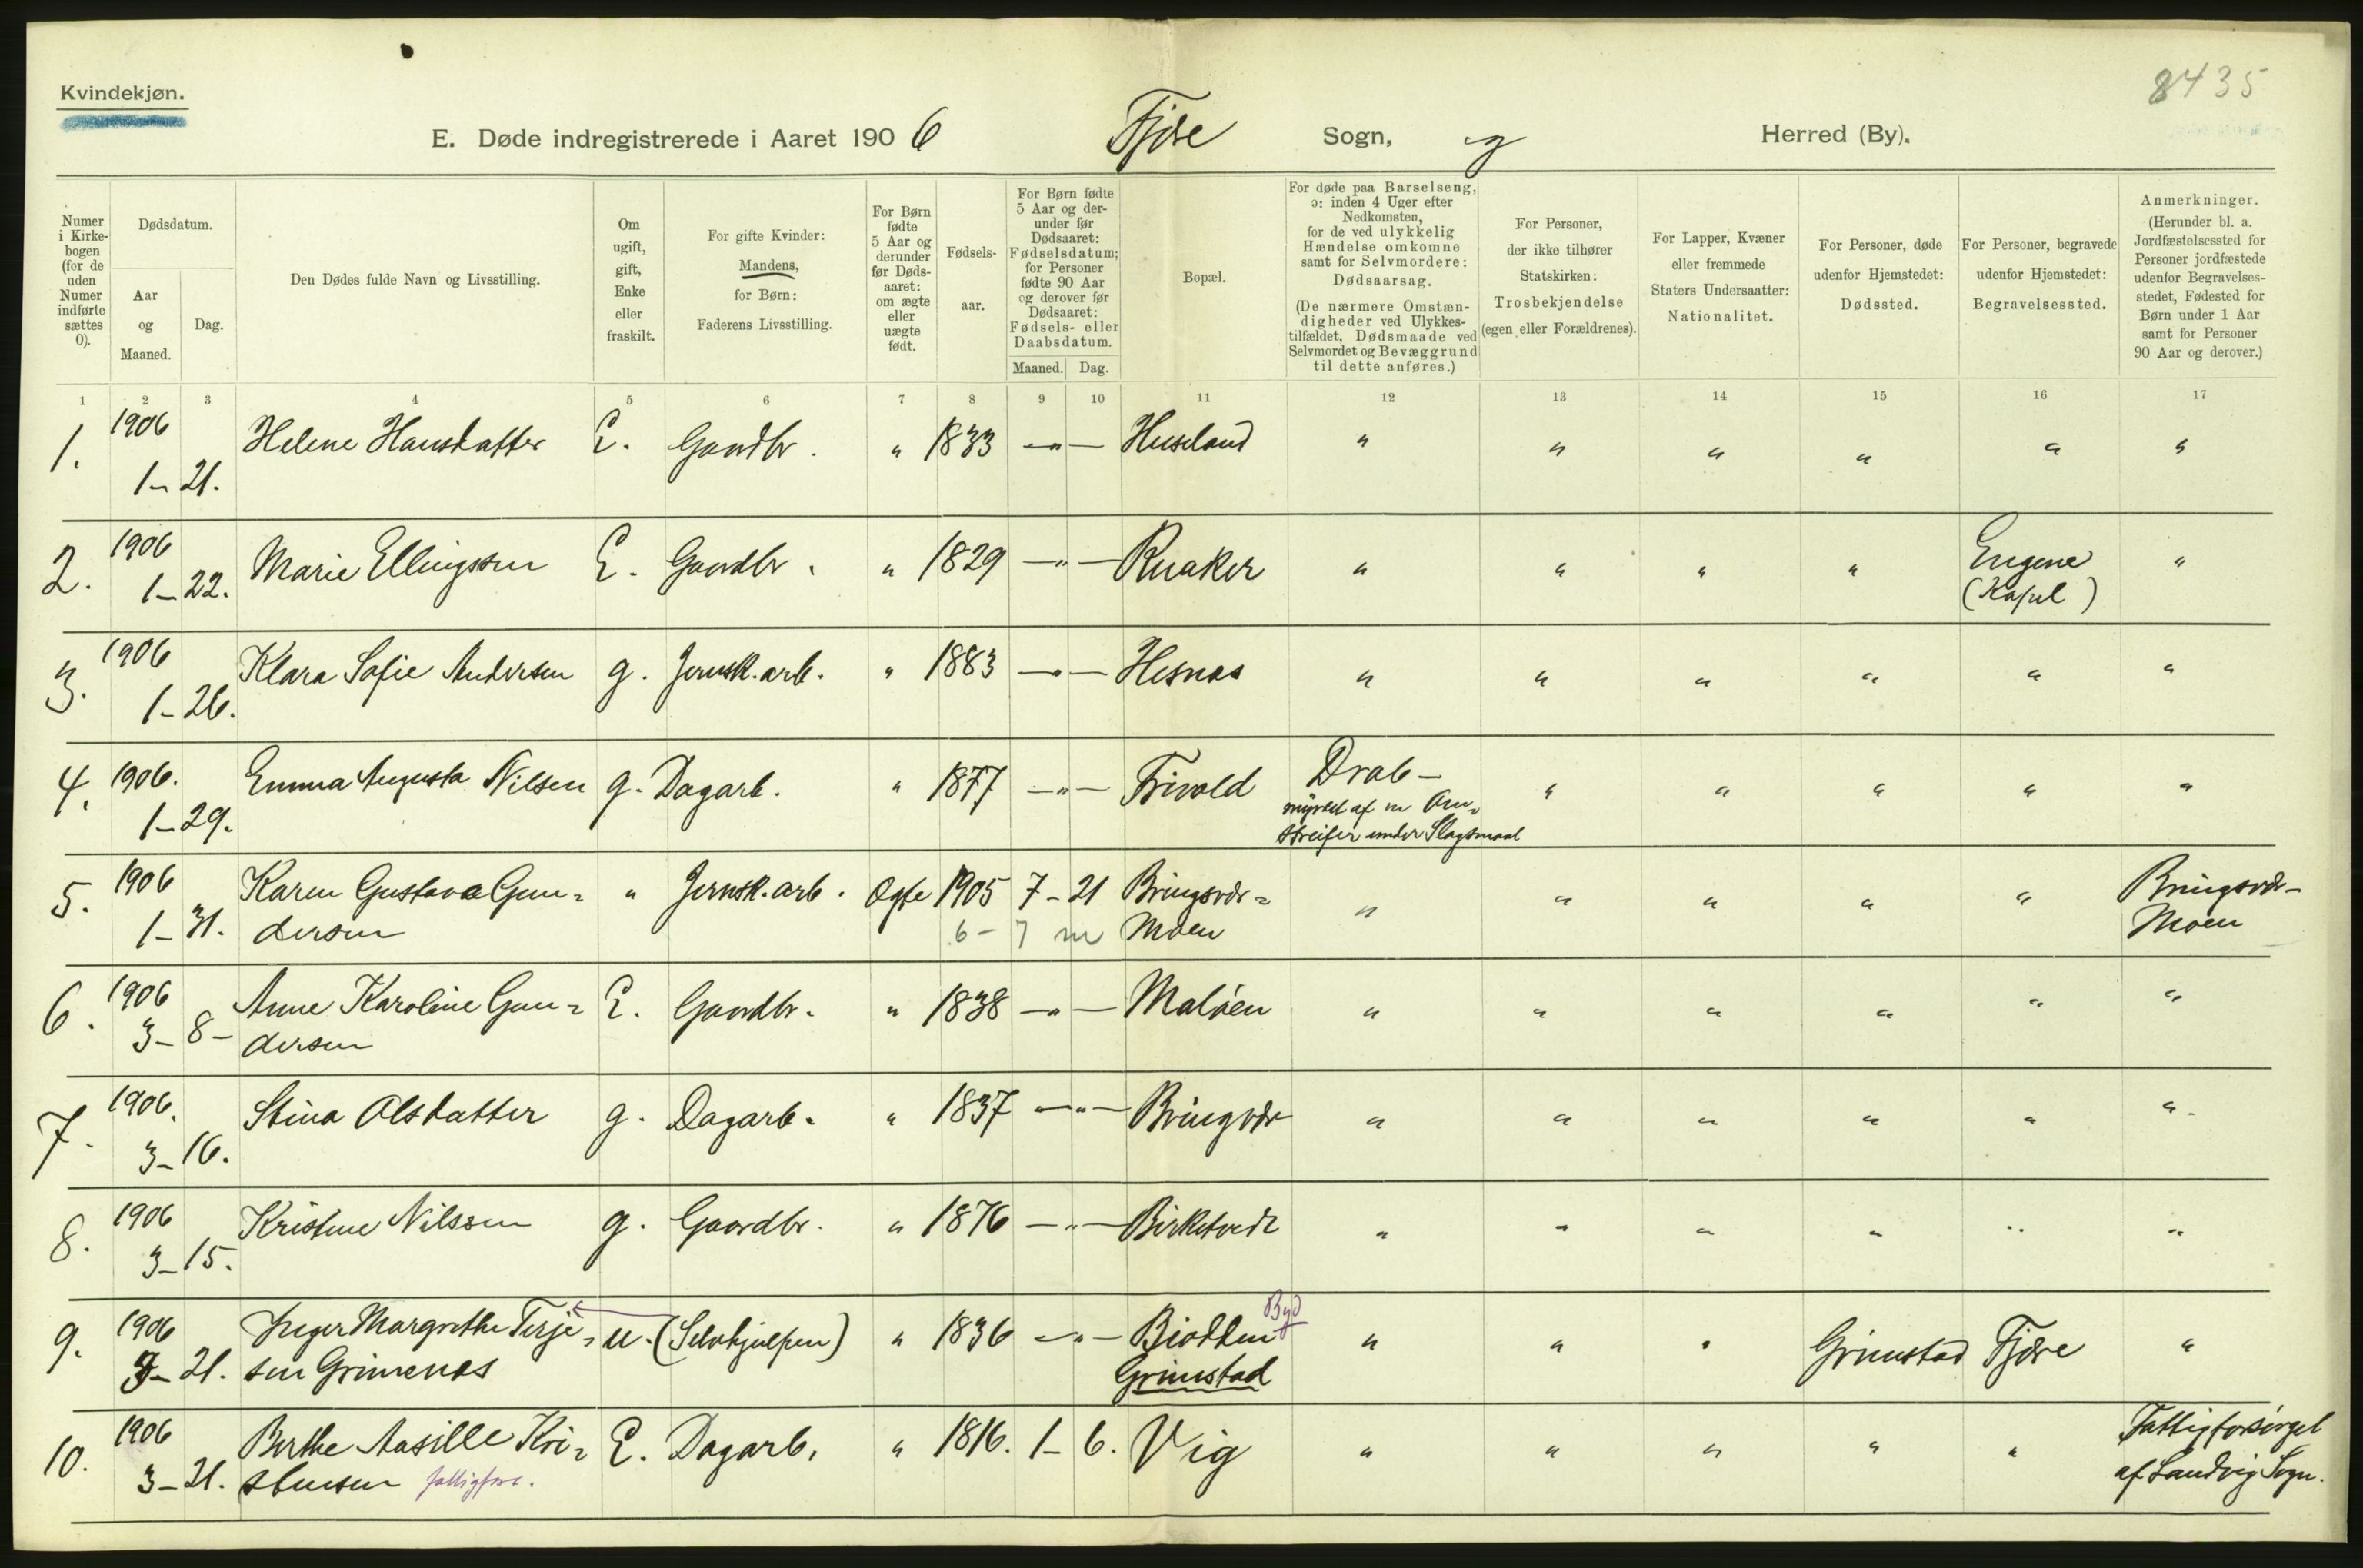 8435
Kvindekjøn.
E. Døde indregistrerede i Aaret 1906 Fjære Sogn, Herred (By).
Numer i Kirkebogen (for de uden Numer indførte sættes 0).
Dødsdatum.
Aar og Maaned.
Dag.
Den Dødes fulde Navn og Livsstilling.
Om ugift, gift, Enke eller fraskilt.
For gifte Kvinder: Mandens, for Børn: Faderens Livsstilling.
For Børn fødte 5 Aar og derunder før Døds-aaret: om ægte eller uægte født.
Fødsels-aar.
For Børn fødte 5 Aar og der-under før Dødsaaret: Fødselsdatum; for Personer fødte 90 Aar og derover før Dødsaaret: Fødsels- eller Daabsdatum.
Maaned. Dag.
Bopæl.
For døde paa Barselseng, ɔ: inden 4 Uger efter Nedkomsten, for de ved ulykkelig Hændelse omkomne samt for Selvmordere: Dødsaarsag.
(De nærmere Omstæn-digheder ved Ulykkes-tilfældet, Dødsmaade ved Selvmordet og Bevæggrund til dette anføres.)
For Personer, der ikke tilhører Statskirken: Trosbekjendelse (egen eller Forældrenes).
For Lapper, Kvæner eller fremmede Staters Undersaatter: Nationalitet.
For Personer, døde udenfor Hjemstedet: Dødssted.
For Personer, begravede udenfor Hjemstedet: Begravelsessted.
Anmerkninger. (Herunder bl. a. Jordfæstelsessted for Personer jordfæstede udenfor Begravelses-stedet, Fødested for Børn under 1 Aar samt for Personer 90 Aar og derover.)
1 2 3 4 5 6 7 8 9 10 11 12 13 14 15 16 17
1. 1906 1-21. Helene Hansdatter E. Gaardbr. " 1833 —"— Huseland " " " " " "
2. 1906 1-22. Marie Ellingsen E. Gaardbr. " 1829 —"— Kuaker " " " " Engene (Kapel) "
3. 1906 1-26. Klara Sofie Andersen g. Jernsk. arb. " 1883 —"— Hesnæs " " " " " "
4. 1906. 1-29. Emma Augusta Nilsen g. Dagarb. " 1877 —"— Frivold Drab-
myrdet af en Om-
streifer under Slagsmaal " " " " "
5. 1906 1-31. Karen Gustava Gun-
dersen " Jernsk. arb. Ægte 1905 7-21 Bringsvær-
Moen " " " " " Bringsvær-
Moen
6-7 m
6. 1906 3-8- Anne Karoline Gun-
dersen E. Gaardbr. " 1838 —"— Maløen " " " " " "
7. 1906. 3-16. Stina Olsdatter g. Dagarb. " 1837 —"— Bringvær " " " " " "
8. 1906 3-15. Kristine Nilssen g. Gaardbr. " 1876 —"— Birketvedt " " " " " "
9. 1906 3-21. Inger Margrethe Terje-
sen Grimenæs u. (Selvhjulpen) " 1836 —"— Biodden
Grimstad By " " " Grimstad Fjære "
10. 1906 3-21. Berthe Aasille Kri-
stensen fattigfors. E. Dagarb. " 1816. 1-6. Vig " " " " " Fattigforsørget
af Landvig Sogn.